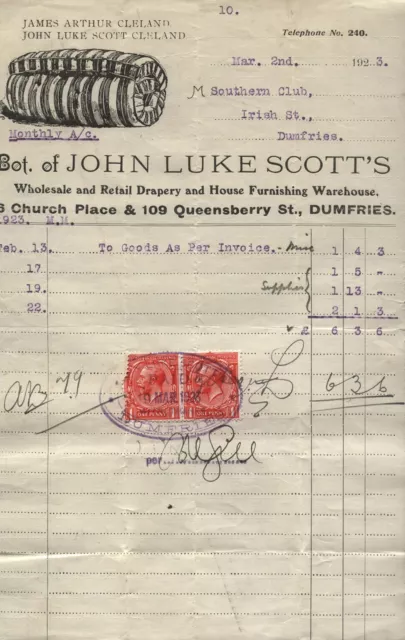 10.
JAMES ARTHUR CLELAND.
JOHN LUKE SCOTT CLELAND
Telephone No. 240.
Mar. 2nd. 1923.
M Southern Club,
Irish St.,
Dumfries.
Monthly A/c.
Bot. of JOHN LUKE SCOTT'S
Wholesale and Retail Drapery and House Furnishing Warehouse.
6 Church Place & 109 Queensberry St., DUMFRIES.
1923. M.M.
Feb. 13. To Goods As Per Invoice.- 1 4 3
17 1 5 "
19. Supplies 1 13 "
22. 2 1 3
£ 6 3 6
79
6 3 6
10 MAR 1923
DUMFRIES
ONE PENNY ONE PENNY
per